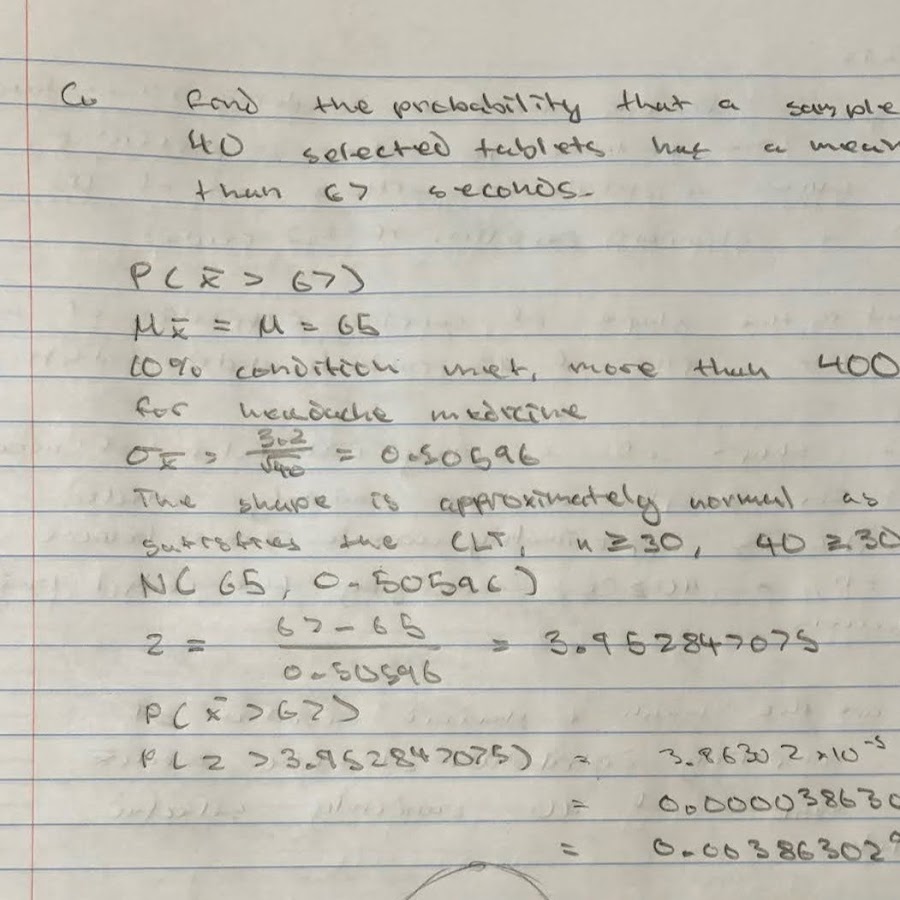 C. Find the probability that a sample
40 selected tablets has a mean
than 67 seconds.
P(x̄ > 67)
μx̄ = μ = 65
10% condition met, more than 400
for headache medicine
σx̄ = 3.2/√40 = 0.50596
The shape is approximately normal as
satisfies the CLT, n ≥ 30, 40 ≥ 30
N(65, 0.50596)
z = 67 - 65 / 0.50596 = 3.952847075
P(x̄ > 67)
P(z > 3.952847075) = 3.86302 × 10⁻⁵
= 0.000038630
= 0.003863029